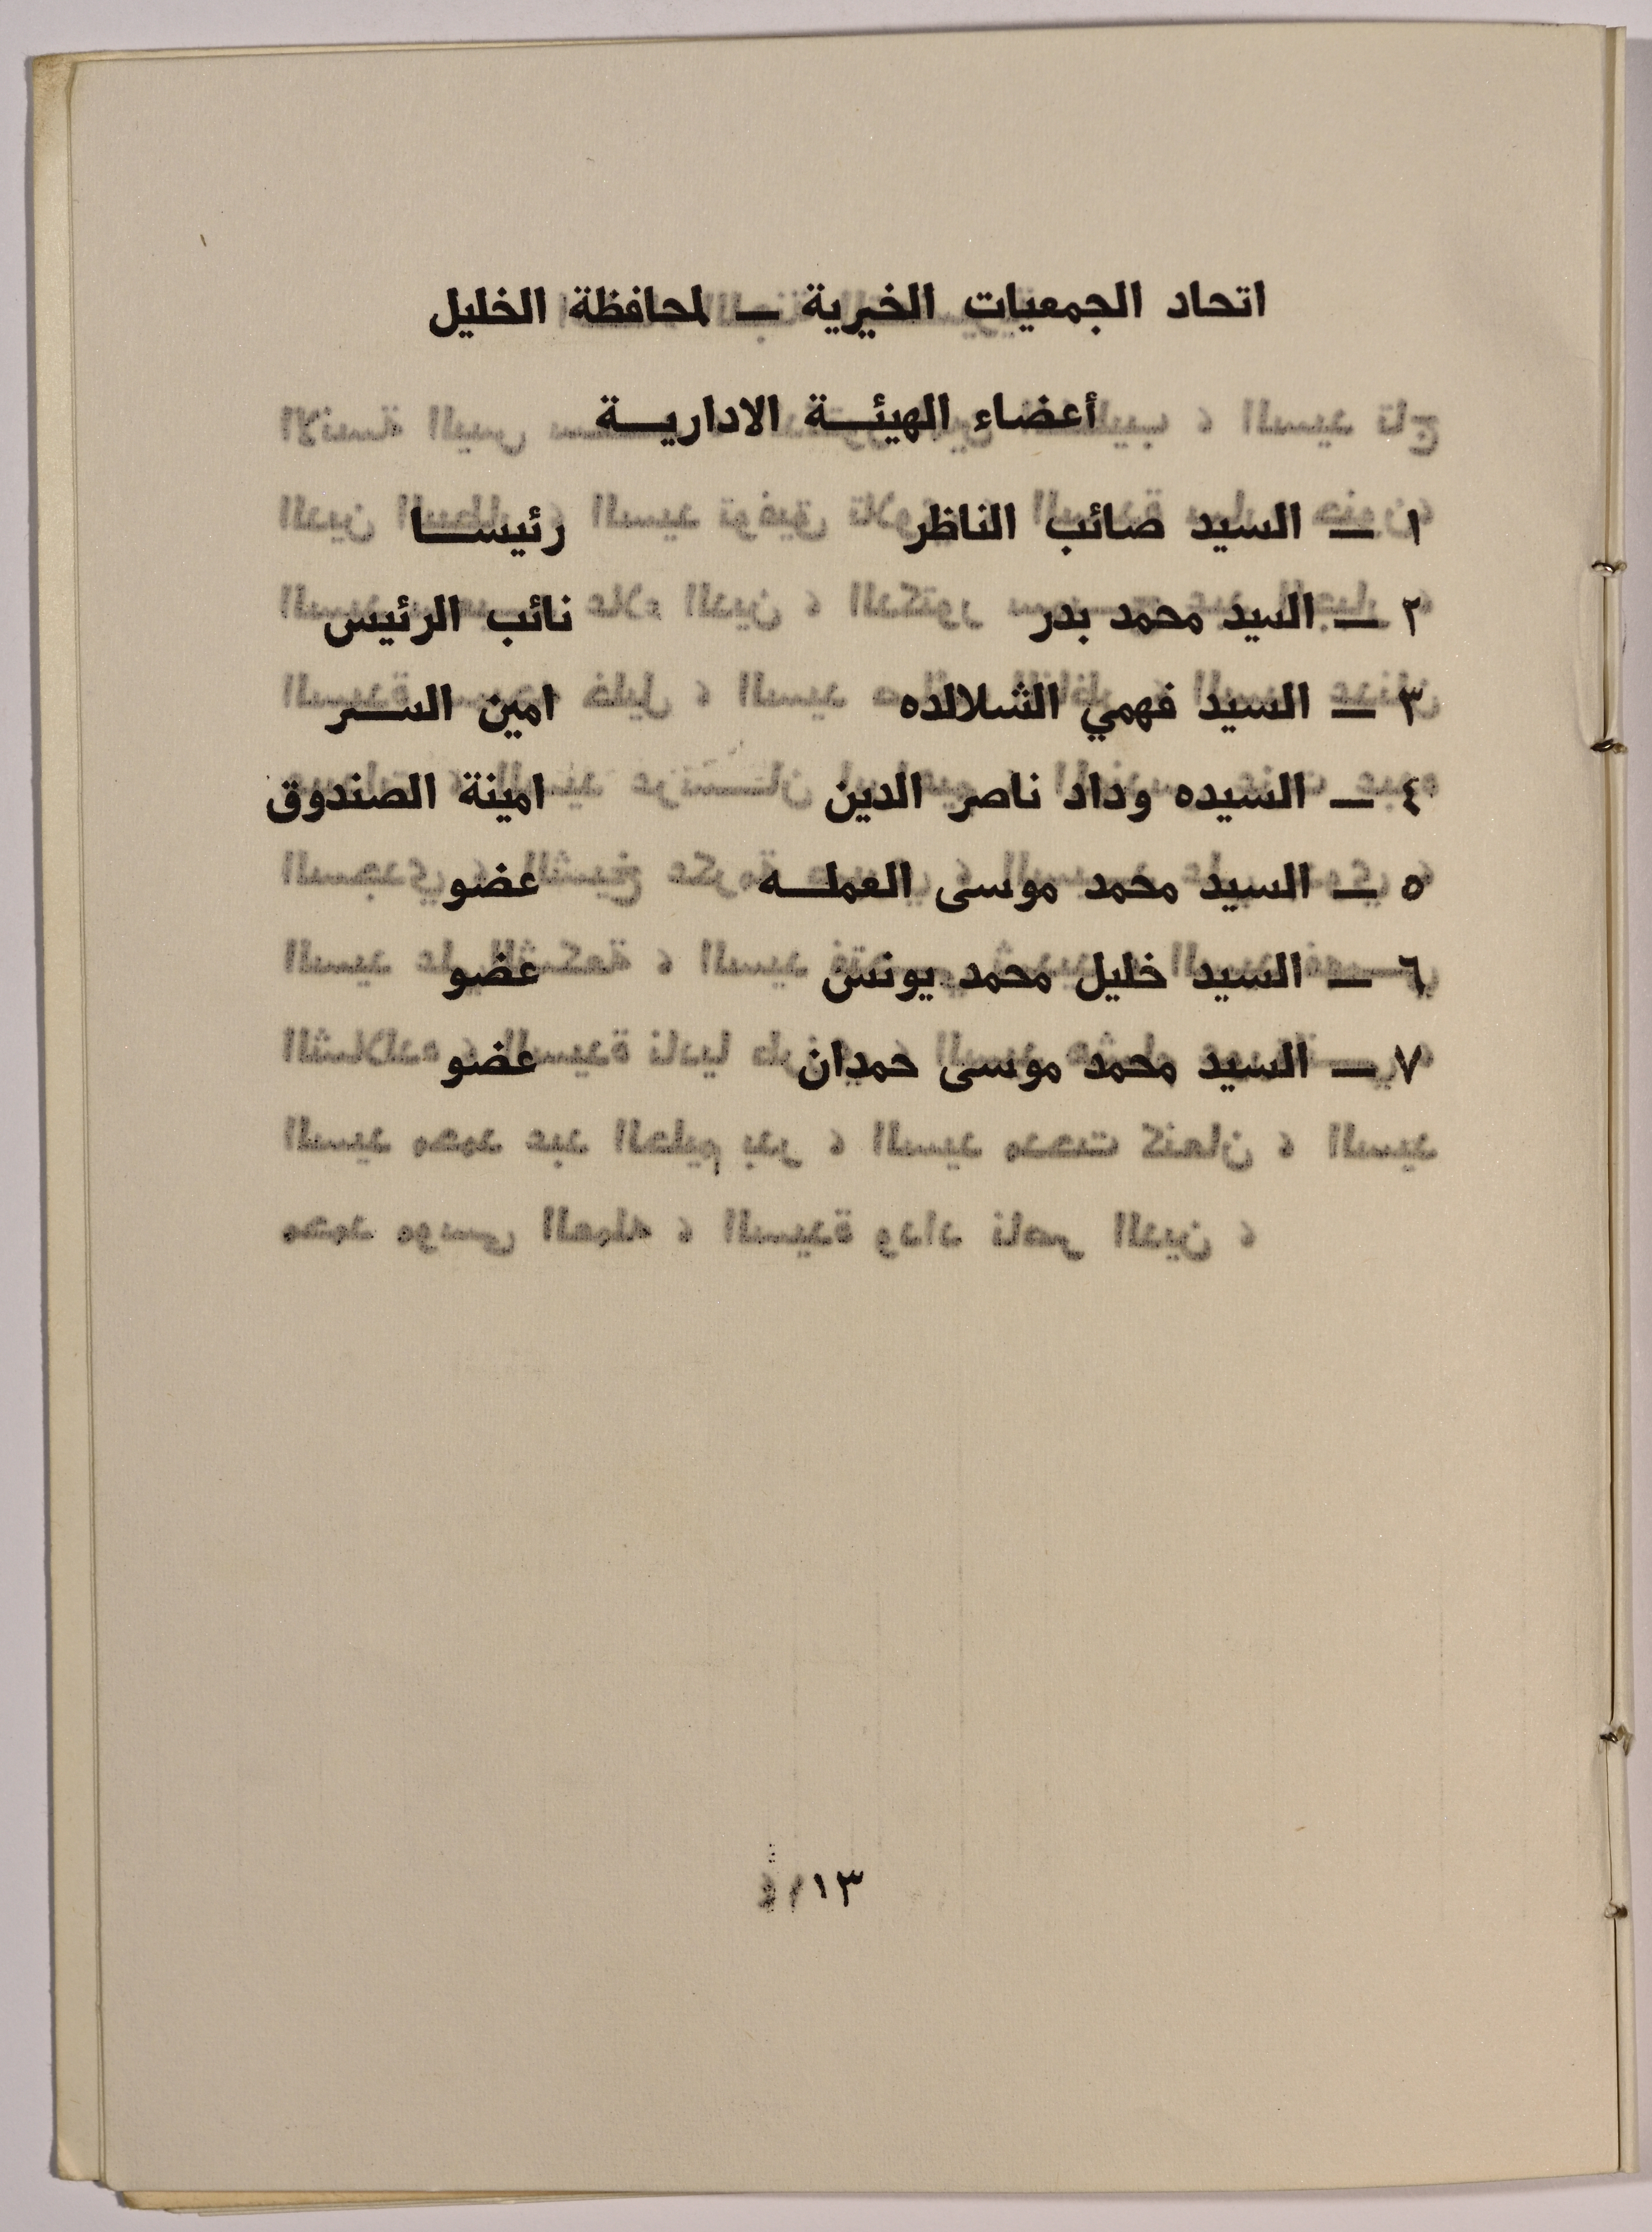 اتحاد الجمعيات الخيرية — لمحافظة الخليل
أعضاء الهيئة الادارية
١ — السيد صائب الناظر رئيسا
٢ — السيد محمد بدر نائب الرئيس
٣ — السيد فهمي الشلالده امين السر
٤ — السيده وداد ناصر الدين امينة الصندوق
٥ — السيد محمد موسى العمله عضو
٦ — السيد خليل محمد يونس عضو
٧ — السيد محمد موسى حمدان عضو
١٣